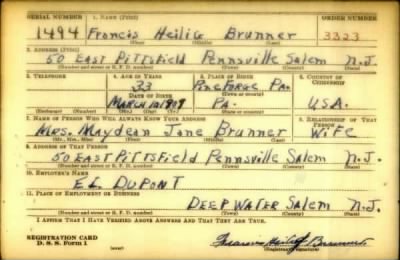 SERIAL NUMBER 1. NAME (Print) ORDER NUMBER
1494 Francis Heilig Brunner 3323
(First) (Middle) (Last)
2. ADDRESS (Print)
50 EAST PITTSfield Pennsville Salem N.J.
(Number and street or R. F. D. number) (Town) (County) (State)
3. TELEPHONE 4. AGE IN YEARS 5. PLACE OF BIRTH 6. COUNTRY OF CITIZENSHIP
33 PineForge PA.
DATE OF BIRTH (Town or county)
March 10 1907 PA. U.S.A.
(Exchange) (Number) (Mo.) (Day) (Yr.) (State or country)
7. NAME OF PERSON WHO WILL ALWAYS KNOW YOUR ADDRESS 8. RELATIONSHIP OF THAT PERSON
Mrs. Maydean Jane Brunner Wife
(Mr., Mrs., Miss) (First) (Middle) (Last)
9. ADDRESS OF THAT PERSON
50 EAST PITTSfield Pennsville Salem N.J.
(Number and street or R. F. D. number) (Town) (County) (State)
10. EMPLOYER'S NAME
E.I. DuPont
11. PLACE OF EMPLOYMENT OR BUSINESS
DEEPWATER Salem N.J.
(Number and street or R. F. D. number) (Town) (County) (State)
I AFFIRM THAT I HAVE VERIFIED ABOVE ANSWERS AND THAT THEY ARE TRUE.
REGISTRATION CARD
D. S. S. Form 1 (over) Francis Heilig Brunner
(Registrant's signature)